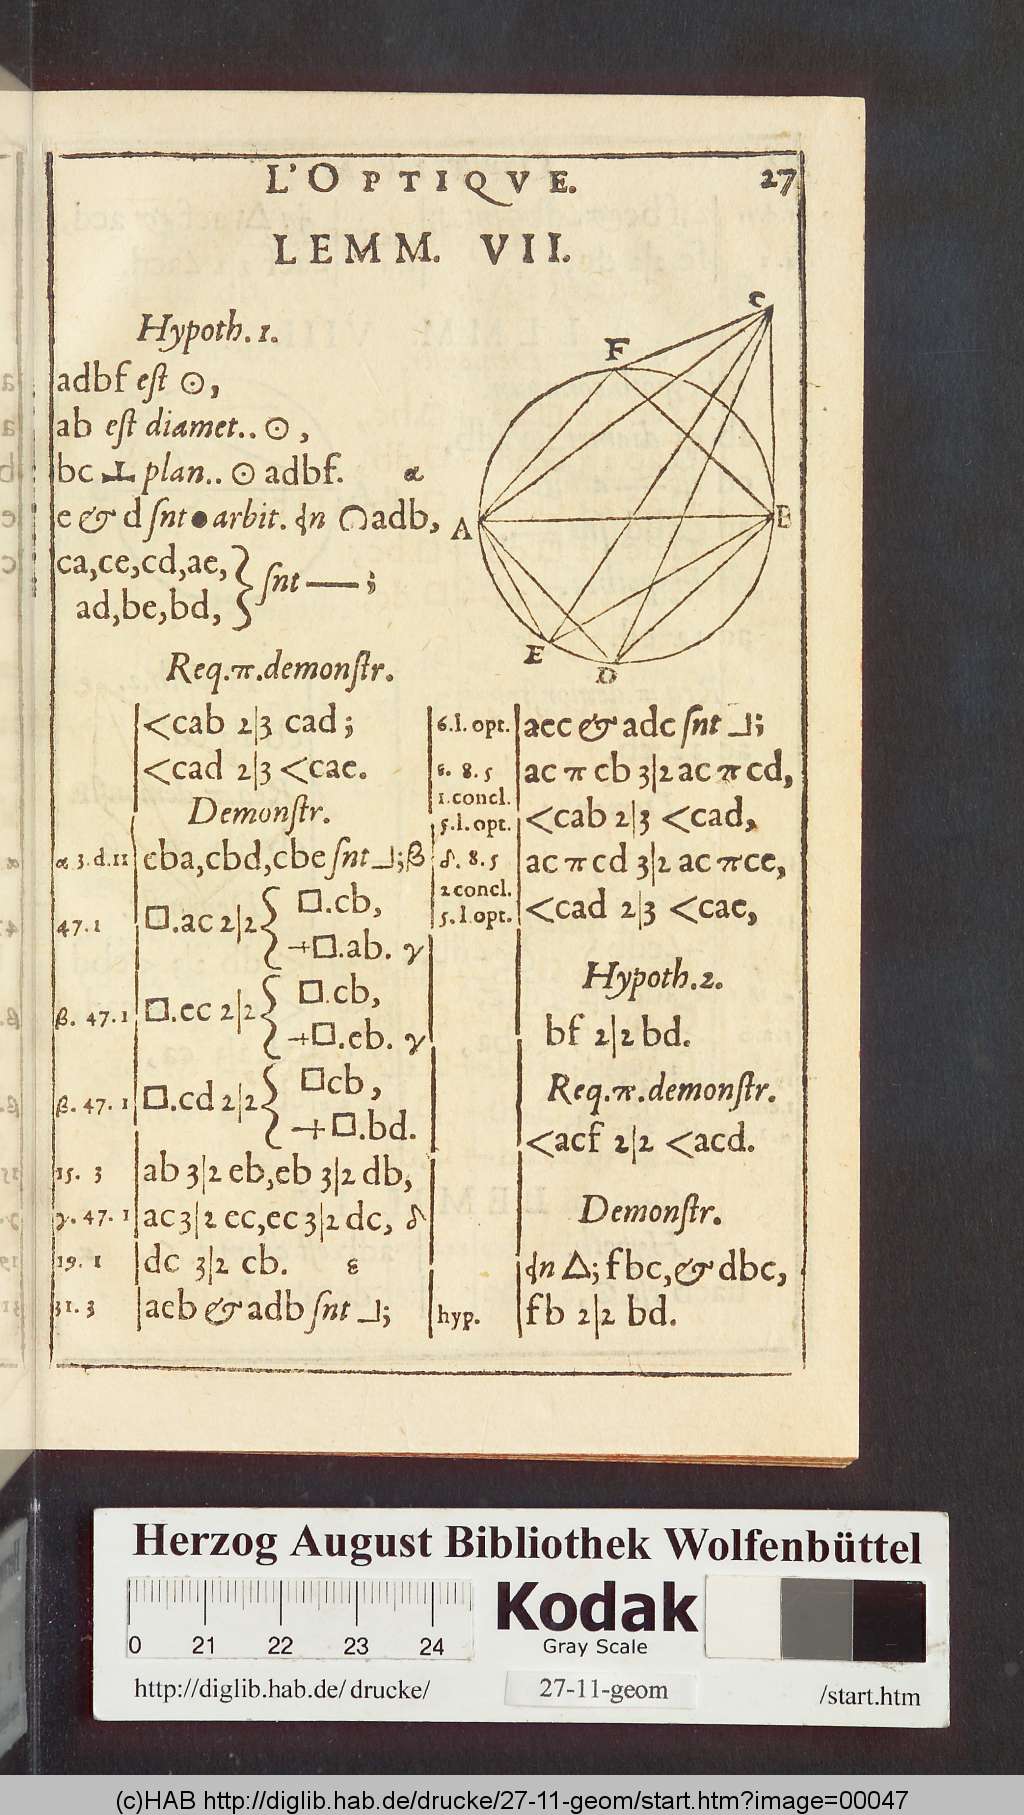 L'OPTIQVE. 27
LEMM. VII.
Hypoth. 1.
adbf est ⊙,
ab est diamet.. ⊙,
bc ⊥ plan.. ⊙ adbf. α
e & d snt ● arbit. dn ∩adb,
ca,ce,cd,ae,
ad,be,bd, } snt —;
C
F
A
B
E
D
Req.π.demonstr.
<cab 2|3 cad;
<cad 2|3 <cae.
Demonstr.
α 3.d.11 eba,cbd,cbe snt ⅃; β
47.1 □.ac 2|2 { □.cb,
+□.ab. γ
β. 47.1 □.ec 2|2 { □.cb,
+□.eb. γ
β. 47. 1 □.cd 2|2 { □cb,
+□.bd.
15. 3 ab 3|2 eb,eb 3|2 db,
γ. 47. 1 ac 3|2 ec,ec 3|2 dc, δ
19. 1 dc 3|2 cb. ε
31. 3 aeb & adb snt ⅃;
6.l. opt. aec & adc snt ⅃;
ε. 8. 5 ac π cb 3|2 ac π cd,
1.concl.
5.l.opt. <cab 2|3 <cad,
δ. 8. 5 ac π cd 3|2 ac π ce,
2 concl.
5.l.opt. <cad 2|3 <cae,
Hypoth.2.
bf 2|2 bd.
Req.π.demonstr.
<acf 2|2 <acd.
Demonstr.
dn △; fbc,& dbc,
hyp. fb 2|2 bd.
Herzog August Bibliothek Wolfenbüttel
0 21 22 23 24
Kodak
Gray Scale
http://diglib.hab.de/ drucke/ 27-11-geom /start.htm
(c)HAB http://diglib.hab.de/drucke/27-11-geom/start.htm?image=00047